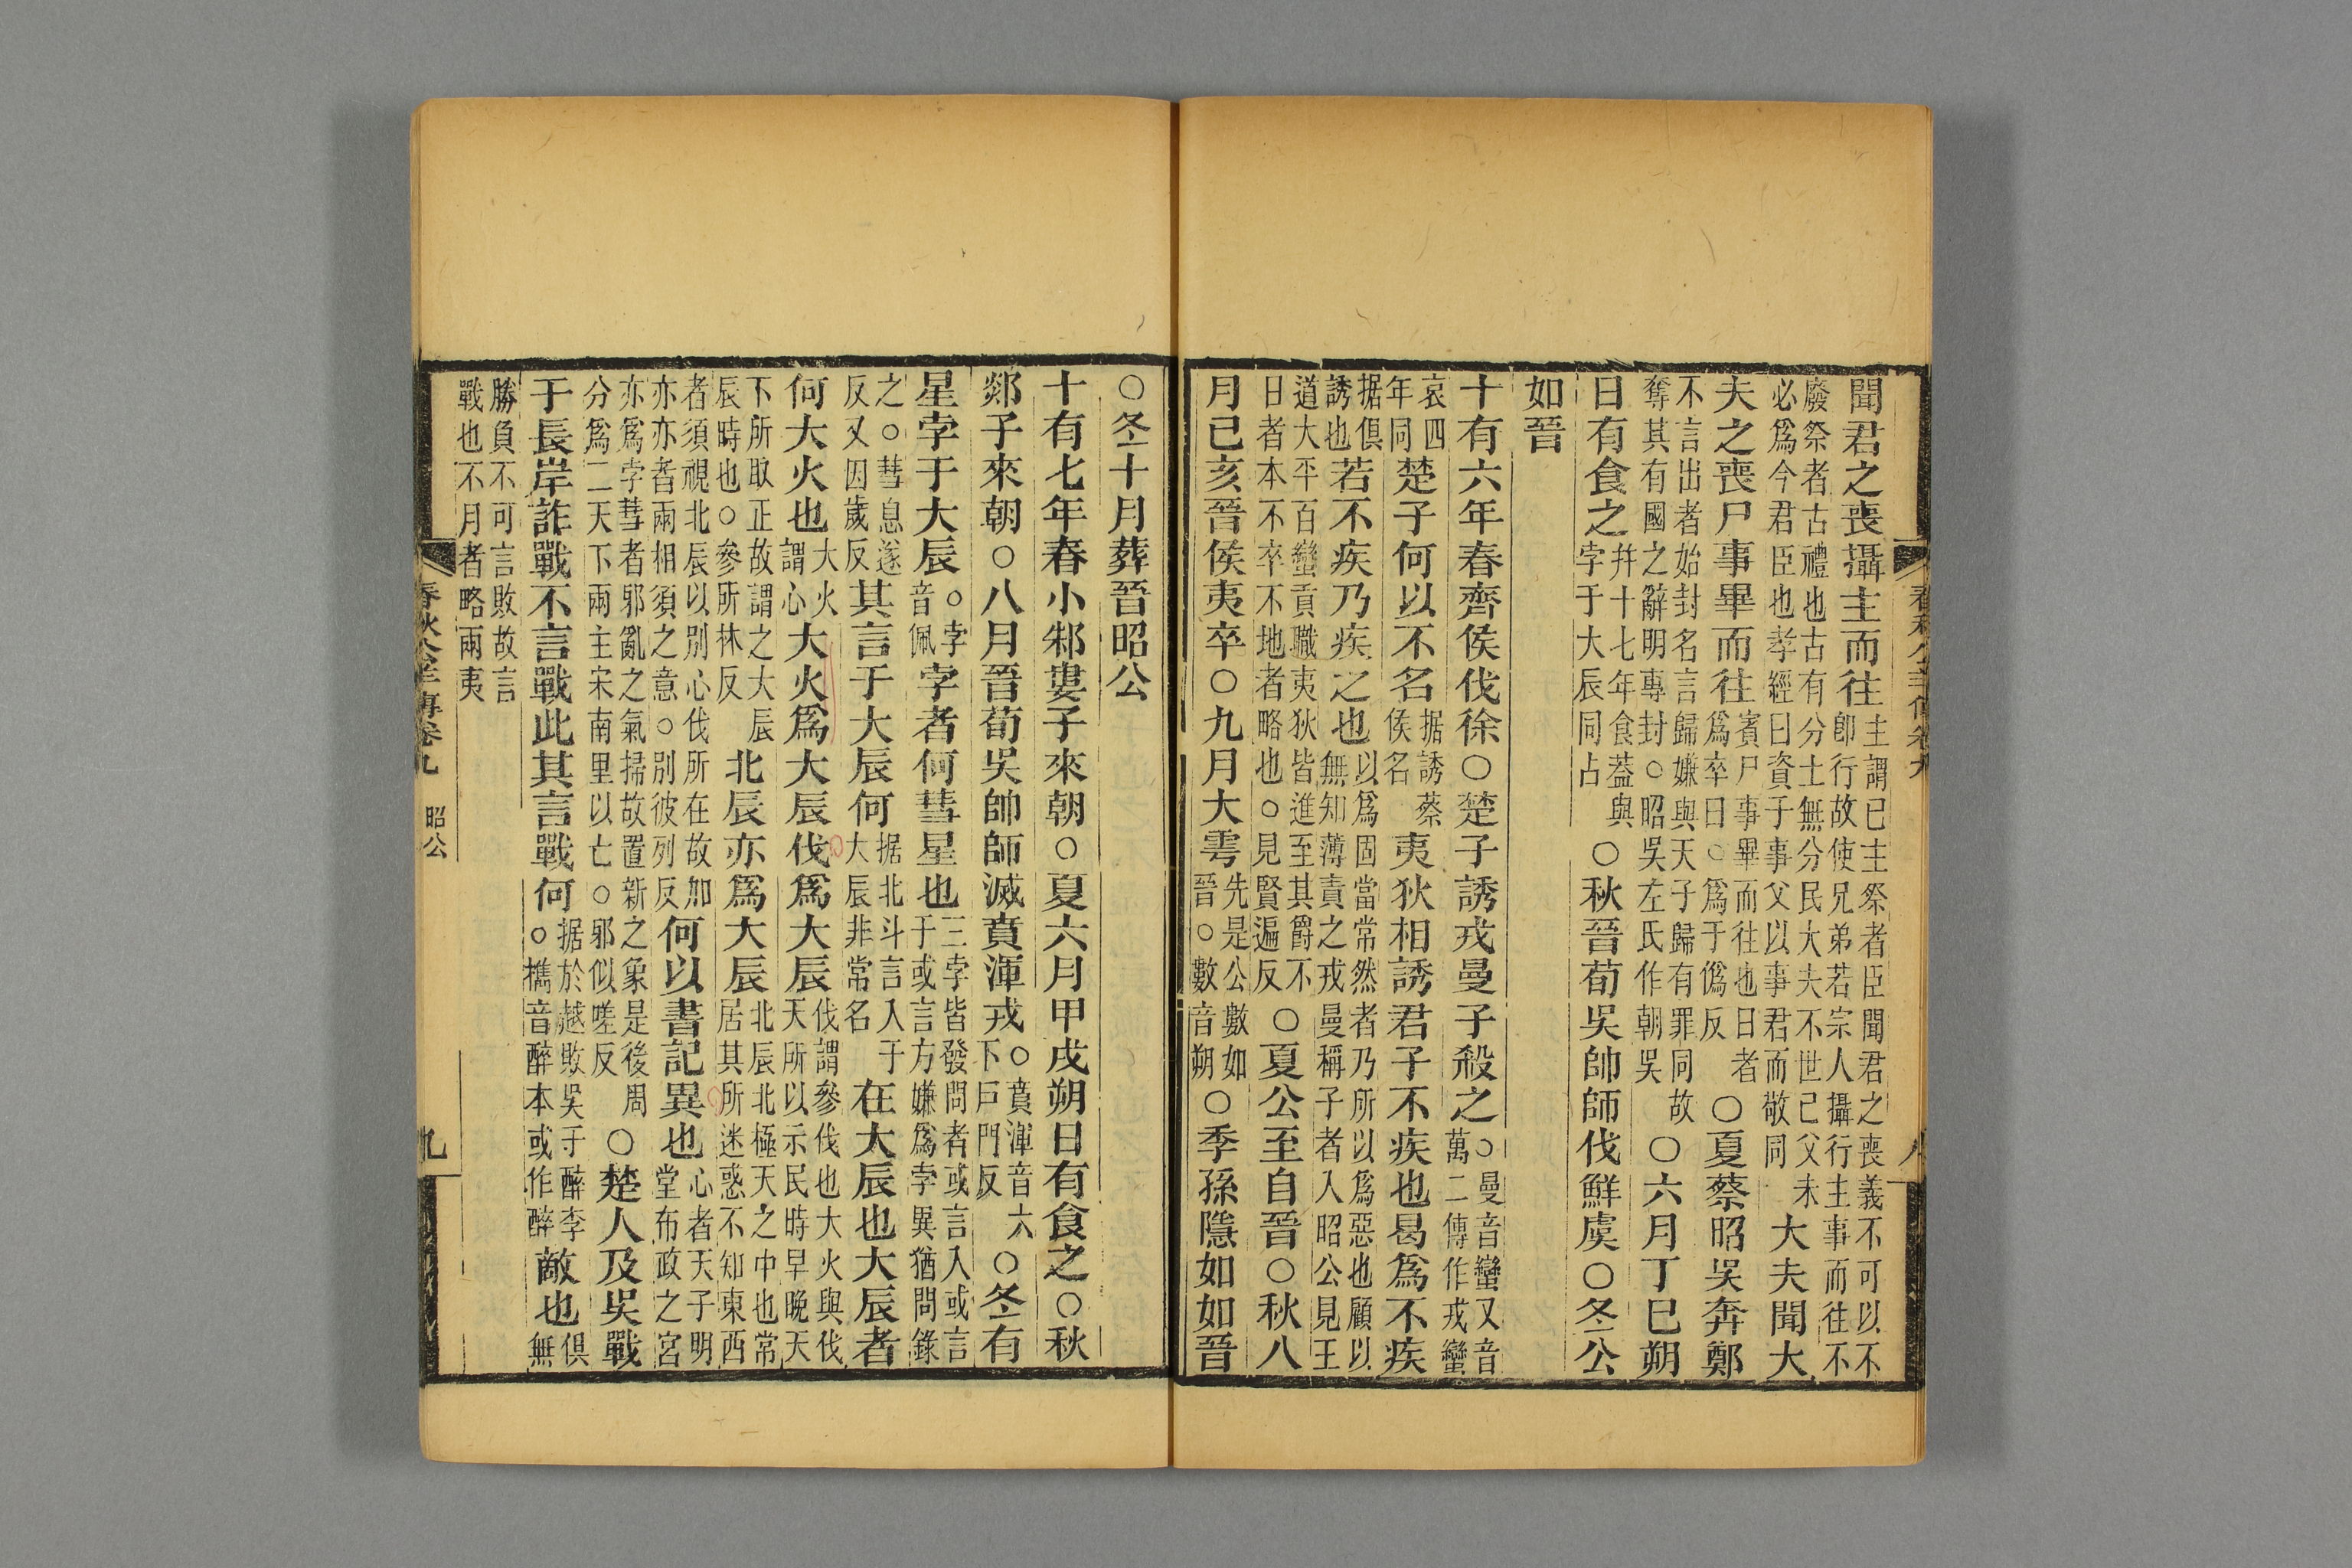 聞君之喪攝主而往主謂已主祭者臣聞君之喪義不可以不即行故使兄弟若宗人攝行主事而往不
廢祭者古禮也古有分土無分民大夫不世已父未必爲今君臣也孝經曰資于事父以事君而敬同大夫聞大
夫之喪尸事畢而往賓尸事畢而往也日者爲卒日○爲于僞反○夏蔡昭吳奔鄭
不言出者始封名言歸嫌與天子歸有罪同故奪其有國之辭明專封○昭吳左氏作朝吳○六月丁巳朔
日有食之幷十七年食蓋與孛于大辰同占○秋晉荀吳帥師伐鮮虞○冬公
如晉
十有六年春齊侯伐徐○楚子誘戎曼子殺之○曼音蠻又音萬二傳作戎蠻
哀四年同楚子何以不名据誘蔡侯名夷狄相誘君子不疾也曷爲不疾
据俱誘也若不疾乃疾之也以爲固當常然者乃所以爲惡也顧以無知薄責之戎曼稱子者入昭公見王
道大平百蠻貢職夷狄皆進至其爵不日者本不卒不地者略也○見賢遍反○夏公至自晉○秋八
月己亥晉侯夷卒○九月大雩先是公數如晉○數音朔○季孫隱如如晉
○冬十月葬晉昭公
十有七年春小邾婁子來朝○夏六月甲戌朔日有食之○秋
郯子來朝○八月晉荀吳帥師滅賁渾戎○賁渾音六下戶門反○冬有
星孛于大辰○孛音佩孛者何彗星也三孛皆發問者或言入或言于或言方嫌爲孛異猶問錄
之○彗息遂反又囚歲反其言于大辰何据北斗言入于大辰非常名在大辰也大辰者
何大火也大火謂心大火爲大辰伐爲大辰伐謂參伐也大火與伐天所以示民時早晚天
下所取正故謂之大辰辰時也○參所林反北辰亦爲大辰北辰北極天之中也常居其所迷惑不知東西
者須視北辰以別心伐所在故加亦亦者兩相須之意○別彼列反何以書記異也心者天子明堂布政之宮
亦爲孛彗者邪亂之氣掃故置新之象是後周分爲二天下兩主宋南里以亡○邪似嗟反○楚人及吳戰
于長岸詐戰不言戰此其言戰何据於越敗吳于醉李○檇音醉本或作醉敵也俱無
勝負不可言敗故言戰也不月者略兩夷
春秋公羊傳卷九 昭公 九